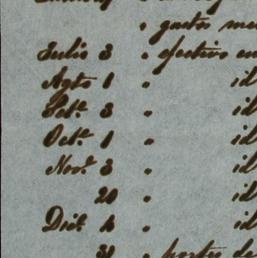 " gastos me
Julio 3 " efectivo en
Agto 1 " id
Set. 3 " id
Oct. 1 " id
Nov. 3 " id
20 " id
Dic. 1 " id
31 "